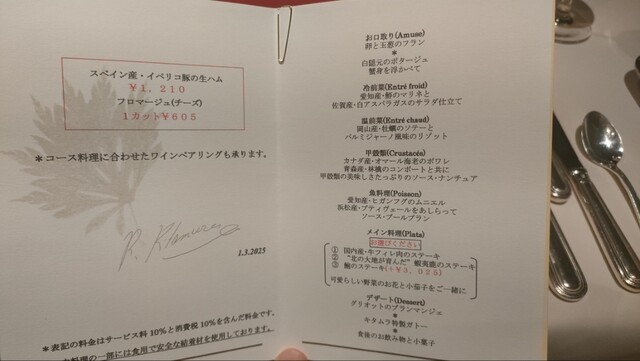 スペイン産・イベリコ豚の生ハム
￥１，２１０
フロマージュ(チーズ)
１カット￥６０５
＊コース料理に合わせたワインペアリングも承ります。
1.3.2025
＊表記の料金はサービス料 10％と消費税 10％を含んだ料金です。
料理の一部には食用で安全な結着材を使用しております。
お口取り(Amuse)
卵と玉葱のフラン
＊
白隠元のポタージュ
蟹身を浮かべて
冷前菜(Entré froid)
愛知産・鰤のマリネと
佐賀産・白アスパラガスのサラダ仕立て
温前菜(Entré chaud)
岡山産・牡蠣のソテーと
パルミジャーノ風味のリゾット
甲殻類(Crustacés)
カナダ産・オマール海老のポワレ
青森産・林檎のコンポートと共に
甲殻類の美味しさたっぷりのソース・ナンチュア
魚料理(Poisson)
愛知産・ヒガンフグのムニエル
浜松産・プティヴェールをあしらって
ソース・ブールブラン
メイン料理(Plats)
お選びください
① 国内産・牛フィレ肉のステーキ
② “北の大地が育んだ”蝦夷鹿のステーキ
③ 鮑のステーキ(＋￥３，０２５)
可愛らしい野菜のお花と小茄子をご一緒に
デザート(Dessert)
グリオットのブランマンジェ
＊
キタムラ特製ガトー
＊
食後のお飲み物と小菓子